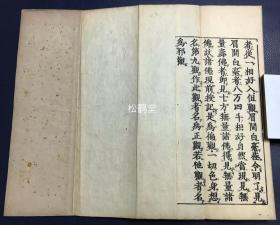 者從一相好入但觀眉間白毫極令明了見
眉間白毫者八万四千相好自然當現見無
量壽佛者即見十方無量諸佛得見無量諸
佛故諸佛現前授記是為徧觀一切色身想
名第九觀作此觀者名為正觀若他觀者名
為邪觀
松鹤堂